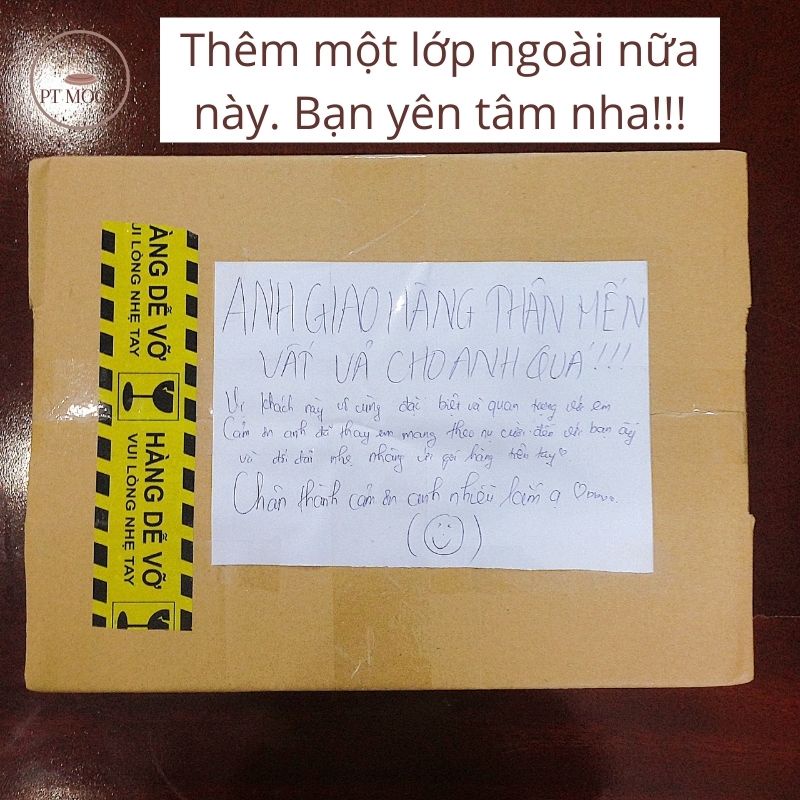 PT MỘC
Thêm một lớp ngoài nữa
này. Bạn yên tâm nha!!!
ÀNG DỄ VỠ
UI LÒNG NHẸ TAY
HÀNG DỄ VỠ
VUI LÒNG NHẸ TAY
ANH GIAO HÀNG THÂN MẾN
VẤT VẢ CHO ANH QUÁ!!!
Vì khách này vô cùng đặc biệt và quan trọng với em
Cảm ơn anh đã thay em mang theo nụ cười đến với bạn ấy
và đối đãi nhẹ nhàng với gói hàng trên tay ♡.
Chân thành cảm ơn anh nhiều lắm ạ ♡